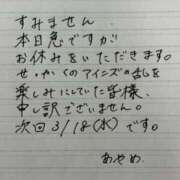 すみません
本日急ですが
お休みをいただきます。
せっかくのアイニズの乱を
楽しみにしていた皆様、
申し訳ございません。
次回3/18(水)です。
あやめ